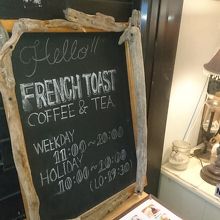 Hello!!
FRENCH TOAST
COFFEE & TEA
WEEKDAY
11:00~20:00
HOLIDAY
10:00~20:00
(LO-19:30)